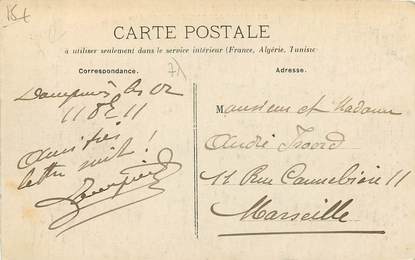 CARTE POSTALE
à utiliser seulement dans le service intérieur (France, Algérie, Tunisie
Correspondance.
Adresse.
11 11
Amitiés
lettre suit!
Monsieur et Madame
André
11 Rue Cannebière 11
Marseille